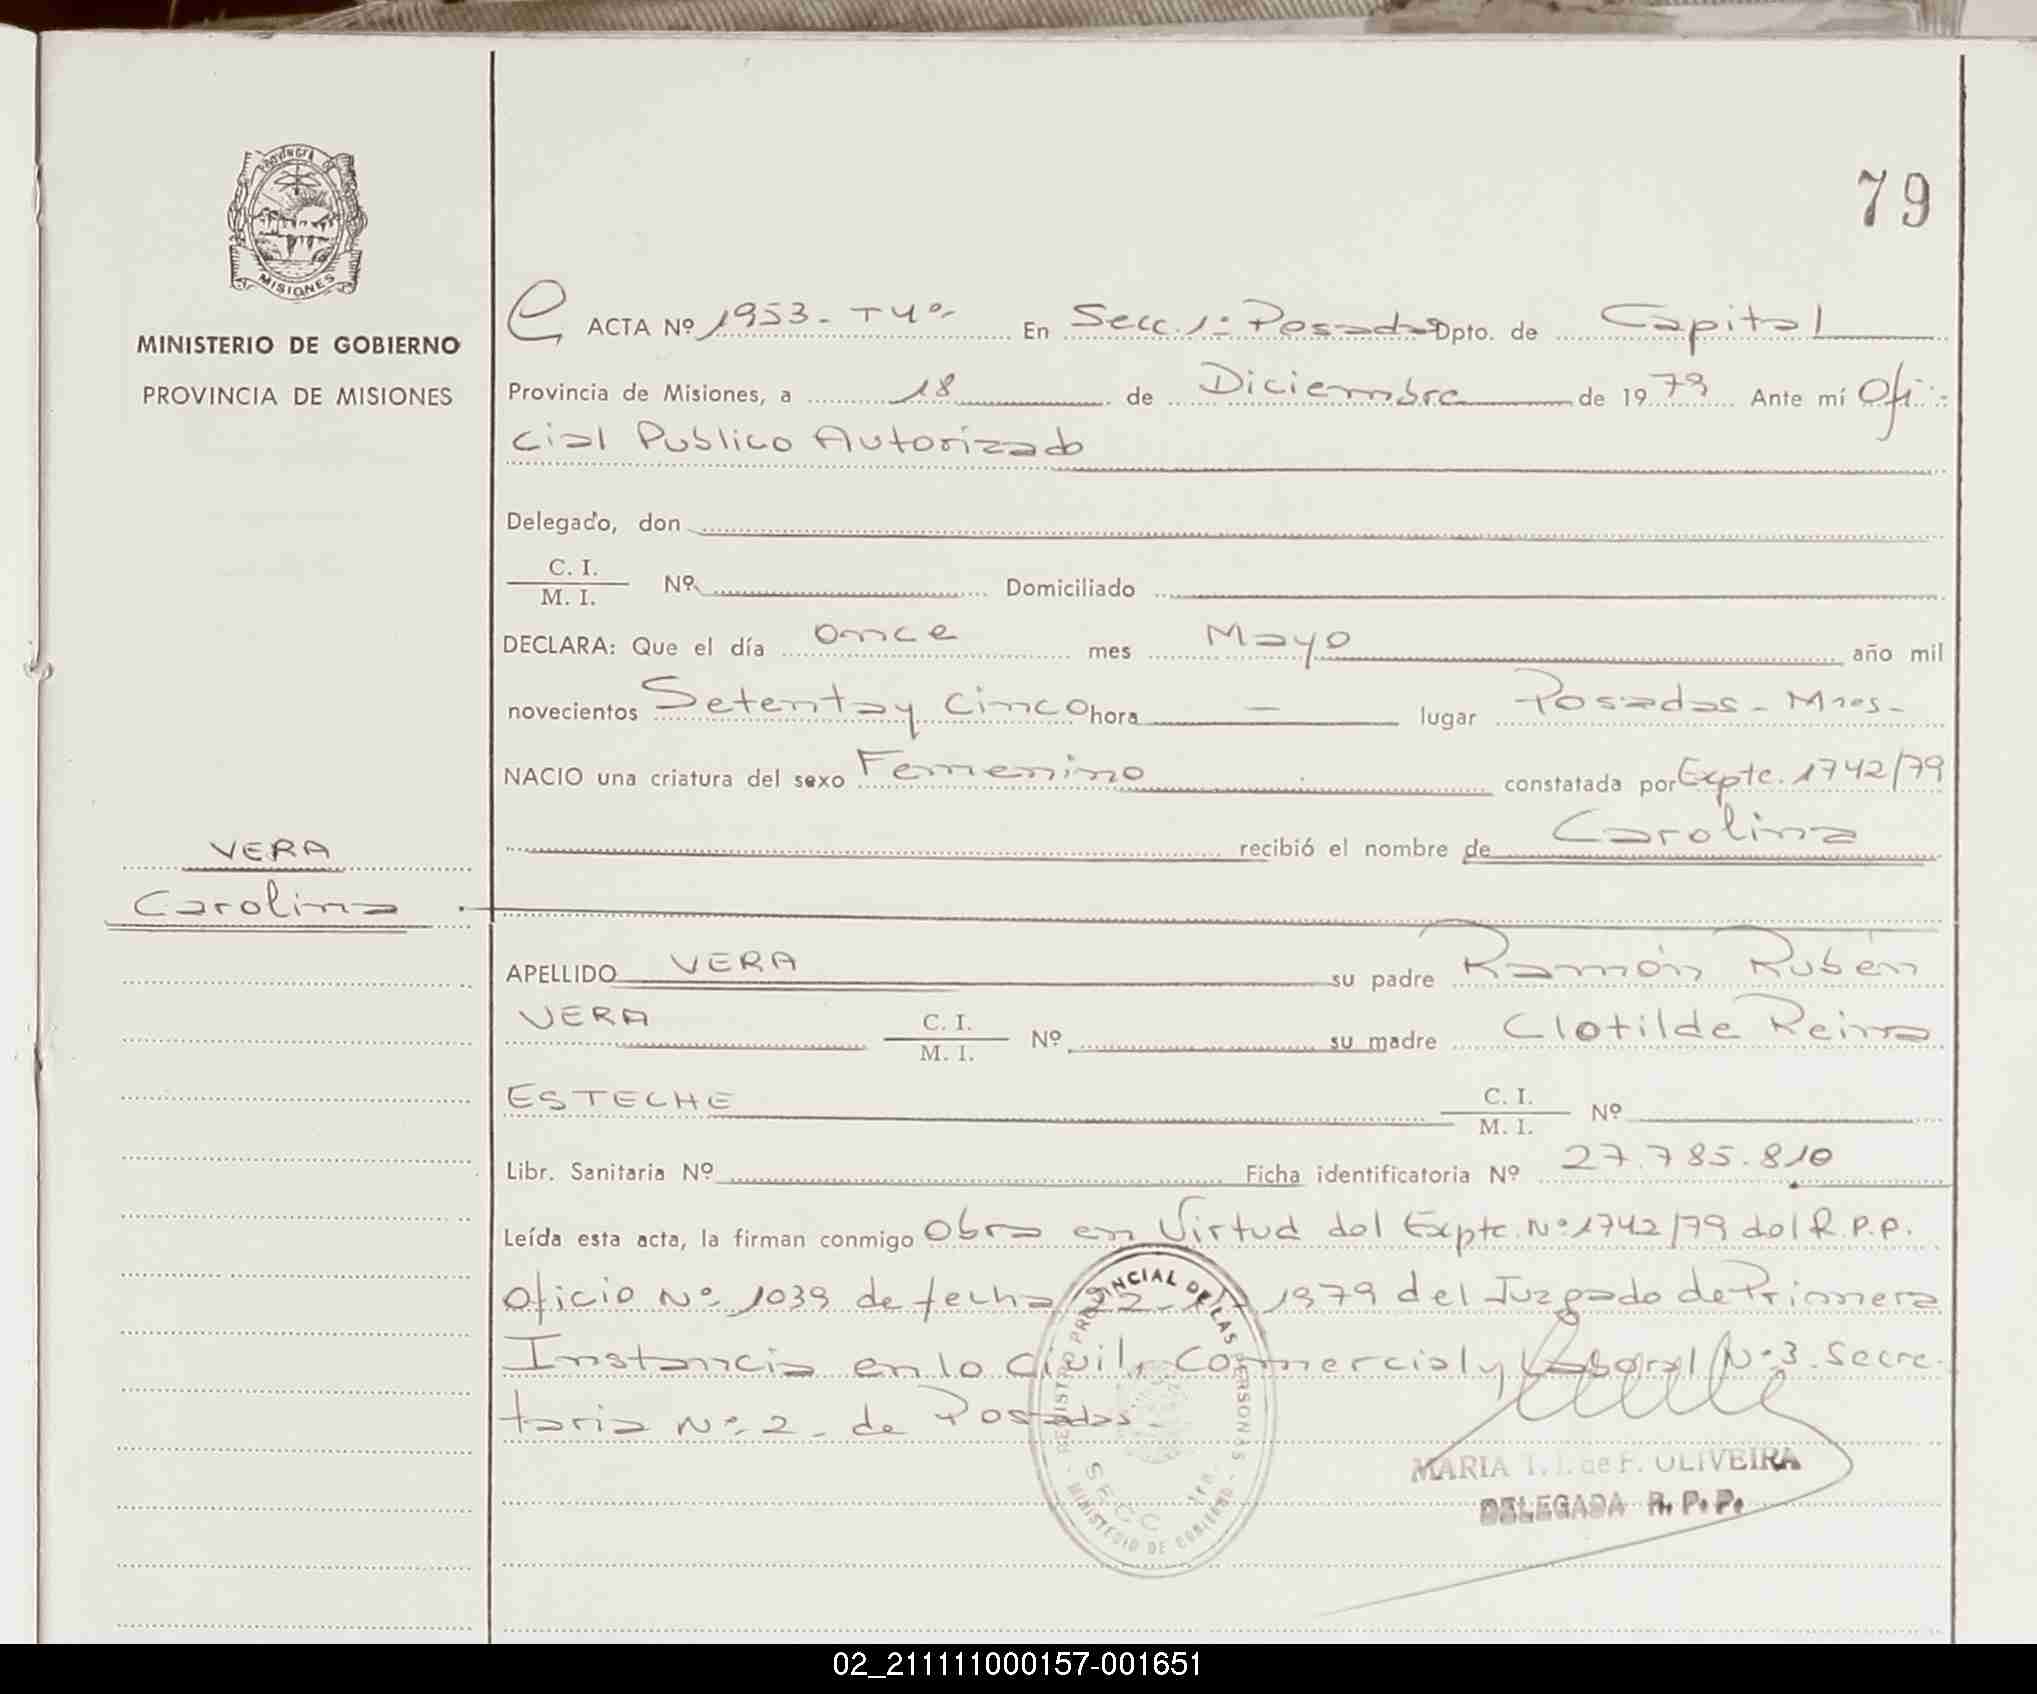 79
PROVINCIA DE
MISIONES
MINISTERIO DE GOBIERNO
PROVINCIA DE MISIONES
ACTA Nº 1953 - Tº 4º - En Secc. 1ª Posadas Dpto. de Capital
Provincia de Misiones, a 18 de Diciembre de 1979 Ante mí Ofi-
cial Publico Autorizado
Delegado, don
C. I.
M. I. Nº Domiciliado
DECLARA: Que el día once mes Mayo año mil
novecientos Setenta y cinco hora — lugar Posadas - Mnes -
NACIO una criatura del sexo Femenino constatada por Expte. 1742/79
recibió el nombre de Carolina
VERA
Carolina
APELLIDO VERA su padre Ramón Rubén
VERA C. I. M. I. Nº su madre Clotilde Reina
ESTECHE C. I. M. I. Nº
Libr. Sanitaria Nº Ficha identificatoria Nº 27.785.810
Leída esta acta, la firman conmigo Obra en Virtud del Expte. Nº 1742/79 del R.P.P.
Oficio Nº 1039 de fecha 22- 1979 del Juzgado de Primera
Instancia en lo Civil, Comercial y Laboral Nº 3. Secre-
taria Nº 2 - de Posadas.
REGISTRO PROVINCIAL DE LAS PERSONAS
SECC. 1ra.
MINISTERIO DE GOBIERNO
MARIA T. I. de F. OLIVEIRA
DELEGADA R. P. P.
02_211111000157-001651